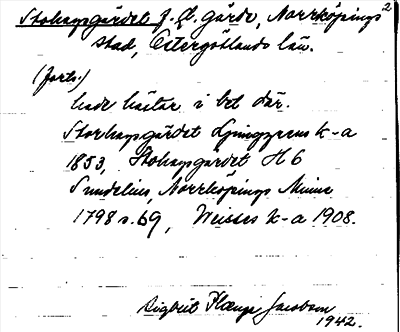 2
Stohagsgärdet f. d. gärde, Norrköpings
stad, Östergötlands län.
(forts.)
hade hästar i bet där.
Storhagsgärdet Ljunggrens k-a
1853, Stohagsgärdet H 6
Sundelius, Norrköpings Minne
1798 s. 69, Weisses k-a 1908.
Sigbrit Plænge Jacobson
1942.